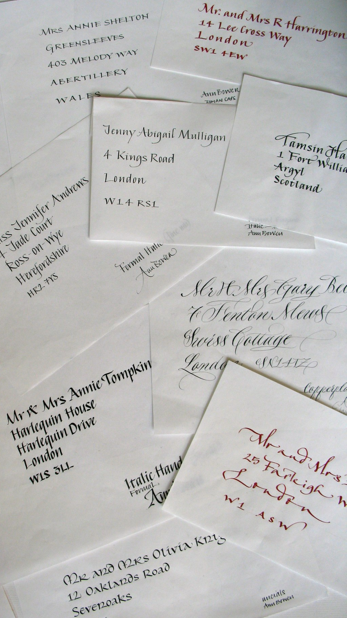 Mrs Annie Shelton
Greensleeves
403 Melody Way
Abertillery
Wales
Mr. and Mrs R Harrington
14 Lee Cross Way
London
SW1 4EW
Ann Bowen
Jenny Abigail Mulligan
4 Kings Road
London
W14 RS1
Tamsin
1 Fort
Argyl
Scotland
Italic
Ann Bowen
Jennifer Andrews
Jude Court
Ross-on-Wye
Herefordshire
HR2 7YS
Formal Italic
Ann Bowen
Mr & Mrs Gary
Swiss Cottage
Mr & Mrs Annie Tompkin
Harlequin House
Harlequin Drive
London
W1S 3LL
Italic Hand
Formal
Mr and Mrs
25 Farleigh
London
W1 ASW
Mr and Mrs Olivia
12 Oaklands Road
Sevenoaks
Unciale
Ann Bowen